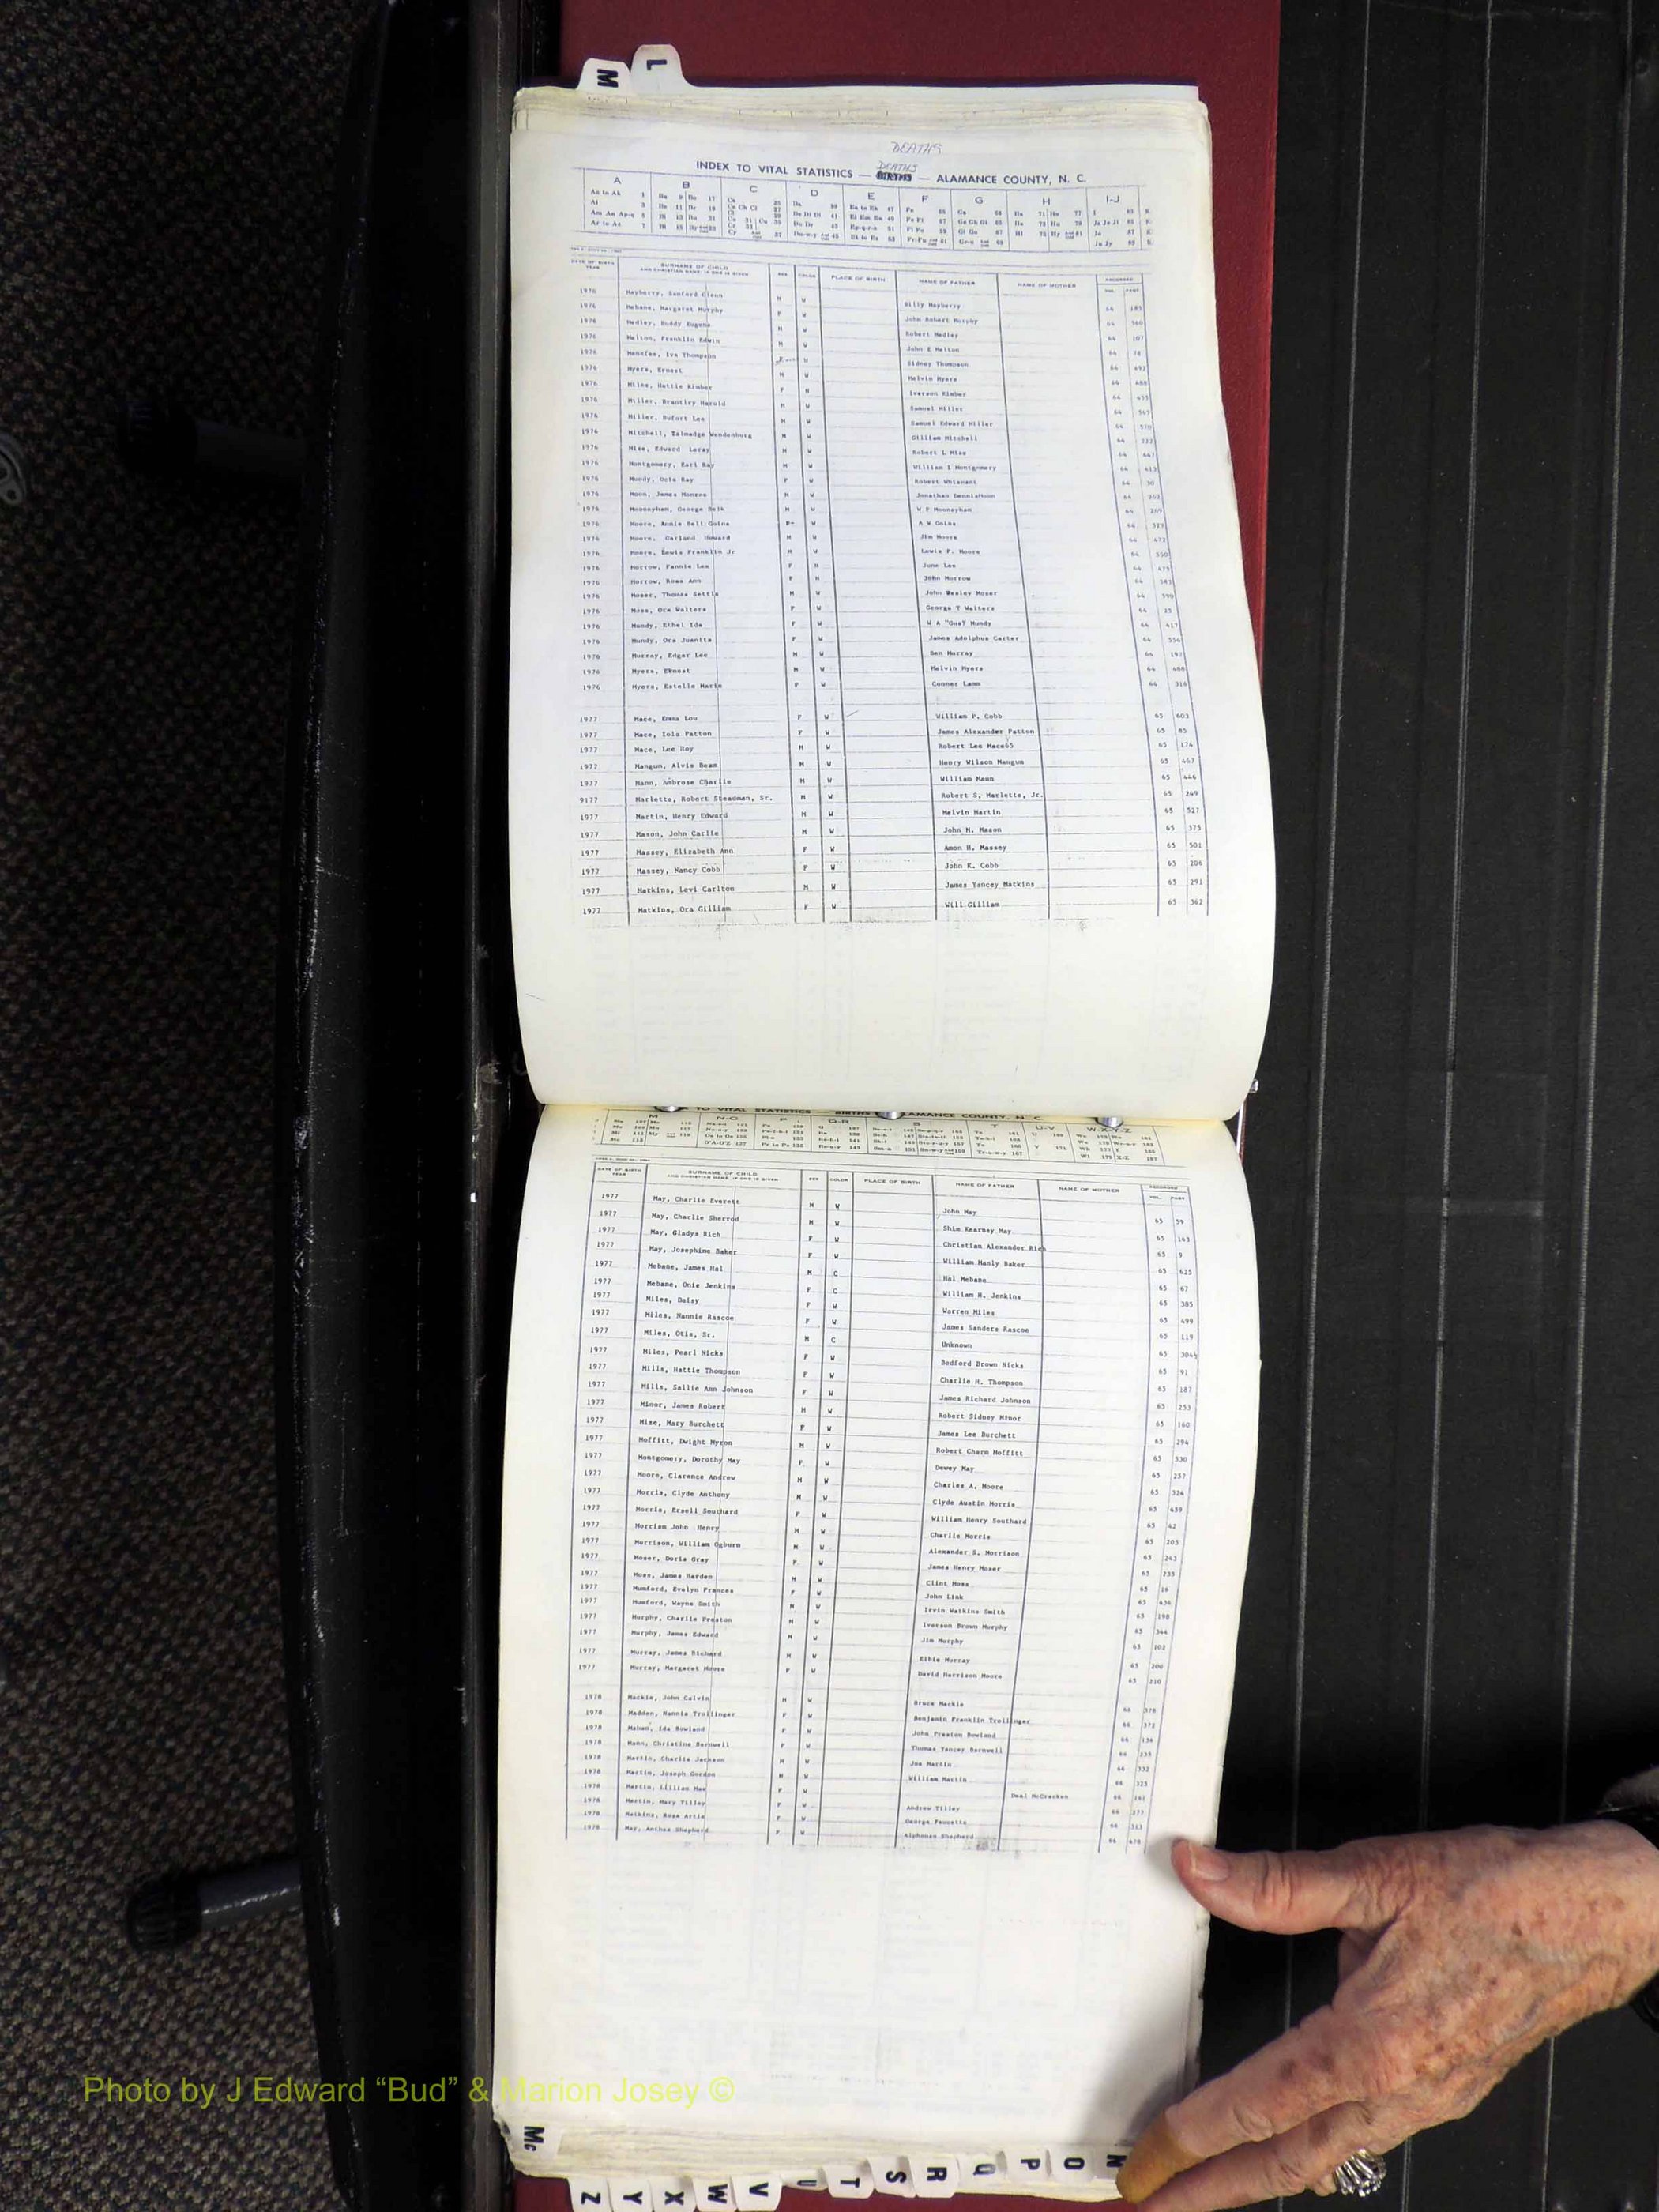 L
M
DEATHS
INDEX TO VITAL STATISTICS — DEATHS — ALAMANCE COUNTY, N. C.
A B C D E F G H I-J
DATE OF BIRTH YEAR SURNAME OF CHILD AND CHRISTIAN NAME IF ONE IS GIVEN SEX COLOR PLACE OF BIRTH NAME OF FATHER NAME OF MOTHER RECORDED VOL. PAGE
1976 Mayberry, Sanford Glenn M W Billy Mayberry 64 185
1976 Mebane, Margaret Murphy F W John Robert Murphy 64 560
1976 Medley, Buddy Eugene M W Robert Medley 64 107
1976 Melton, Franklin Edwin M W John E Melton 64 78
1976 Menefee, Iva Thompson Sidney Thompson 64 492
1976 Myers, Ernest M W Melvin Myers 64 488
1976 Milne, Hattie Kimber F N Iverson Kimber 64
1976 Miller, Brantlry Harold M W Samuel Miller 64
1976 Miller, Bufort Lee M W Samuel Edward Miller 64
1976 Mitchell, Talmadge Wendenburg M W Gilliam Mitchell 64
1976 Mise, Edward Leray M W Robert L Mise 64
1976 Montgomery, Earl Ray M W William I Montgomery 64
1976 Moody, Ocie Ray F W Robert Whisnant 64
1976 Moon, James Monroe M W Jonathan DennisMoon 64
1976 Mooneyhan, George Beik M W W P Mooneyhan 64
1976 Moore, Annie Bell Goins F W A W Goins 64 329
1976 Moore, Garland Howard M W Jim Moore 64 472
1976 Moore, Lewis Franklin Jr M W Lewis F. Moore 64 550
1976 Morrow, Fannie Lee F N June Lee 64 475
1976 Morrow, Rosa Ann F N John Morrow 64 583
1976 Moser, Thomas Settle M W John Wesley Moser 64 590
1976 Moss, Ora Walters F W George T Walters 64 25
1976 Mundy, Ethel Ida F W W A "Gus" Mundy 64 417
1976 Mundy, Ora Juanita F W James Adolphus Carter 64 556
1976 Murray, Edgar Lee M W Ben Murray 64 197
1976 Myers, ERnest M W Melvin Myers 64 488
1976 Myers, Estelle Marie F W Conner Lamm 64 316
1977 Mace, Emma Lou F W William P. Cobb 65 603
1977 Mace, Iola Patton F W James Alexander Patton 65 85
1977 Mace, Lee Roy M W Robert Lee Mace65 65 174
1977 Mangum, Alvis Beam M W Henry Wilson Mangum 65 467
1977 Mann, Ambrose Charlie M W William Mann 65 446
9177 Marlette, Robert Steadman, Sr. M W Robert S. Marlette, Jr. 65 249
1977 Martin, Henry Edward M W Melvin Martin 65 527
1977 Mason, John Carlie M W John M. Mason 65 375
1977 Massey, Elizabeth Ann F W Amon H. Massey 65 501
1977 Massey, Nancy Cobb F W John K. Cobb 65 206
1977 Matkins, Levi Carlton M W James Yancey Matkins 65 291
1977 Matkins, Ora Gilliam F W Will Gilliam 65 362
TO VITAL STATISTICS — BIRTHS — ALAMANCE COUNTY, N. C.
M N-O P Q-R S T U-V W-X-Y-Z
DATE OF BIRTH YEAR SURNAME OF CHILD AND CHRISTIAN NAME IF ONE IS GIVEN SEX COLOR PLACE OF BIRTH NAME OF FATHER NAME OF MOTHER RECORDED VOL. PAGE
1977 May, Charlie Everett M W John May 65 59
1977 May, Charlie Sherrod M W Shim Kearney May 65 163
1977 May, Gladys Rich F W Christian Alexander Rich 65 9
1977 May, Josephine Baker F W William Manly Baker 65 625
1977 Mebane, James Hal M C Hal Mebane 65 67
1977 Mebane, Onie Jenkins F C William H. Jenkins 65 385
1977 Miles, Daisy F W Warren Miles 65 499
1977 Miles, Nannie Rascoe F W James Sanders Rascoe 65 119
1977 Miles, Otis, Sr. M C Unknown 65 304½
1977 Miles, Pearl Nicks F W Bedford Brown Nicks 65 91
1977 Mills, Hattie Thompson F W Charlie H. Thompson 65 187
1977 Mills, Sallie Ann Johnson F W James Richard Johnson 65 253
1977 Minor, James Robert M W Robert Sidney Minor 65 160
1977 Mise, Mary Burchett F W James Lee Burchett 65 294
1977 Moffitt, Dwight Myron M W Robert Charm Moffitt 65 530
1977 Montgomery, Dorothy May F W Dewey May 65 257
1977 Moore, Clarence Andrew M W Charles A. Moore 65 324
1977 Morris, Clyde Anthony M W Clyde Austin Morris 65 439
1977 Morris, Ersell Southard F W William Henry Southard 65 42
1977 Morrism John Henry M W Charlie Morris 65 205
1977 Morrison, William Ogburn M W Alexander S. Morrison 65 243
1977 Moser, Doris Gray F W James Henry Moser 65 235
1977 Moss, James Harden M W Clint Moss 65 16
1977 Mumford, Evelyn Frances F W John Link 65 436
1977 Mumford, Wayne Smith M W Irvin Watkins Smith 65 198
1977 Murphy, Charlie Preston M W Iverson Brown Murphy 65 344
1977 Murphy, James Edward M W Jim Murphy 65 102
1977 Murray, James Richard M W Elbis Murray 65 200
1977 Murray, Margaret Moore F W David Harrison Moore 65 210
1978 Mackie, John Calvin M W Bruce Mackie 66 378
1978 Madden, Nannie Trollinger F W Benjamin Franklin Trollinger 66 372
1978 Mahan, Ida Rowland F W John Preston Rowland 66 136
1978 Mann, Christine Barnwell F W Thomas Yancey Barnwell 66 235
1978 Martin, Charlie Jackson M W Joe Martin 66 332
1978 Martin, Joseph Gordon M W William Martin 66 325
1978 Martin, Lillian Mae F W Deal McCracken 66 161
1978 Martin, Mary Tilley F W Andrew Tilley 66 277
1978 Matkins, Rosa Artie F W George Faucette 66 313
1978 May, Anthea Shepherd F W Alphonso Shepherd 66 478
Photo by J Edward “Bud” & Marion Josey ©
Mc
N O P Q R S T U V W X Y Z